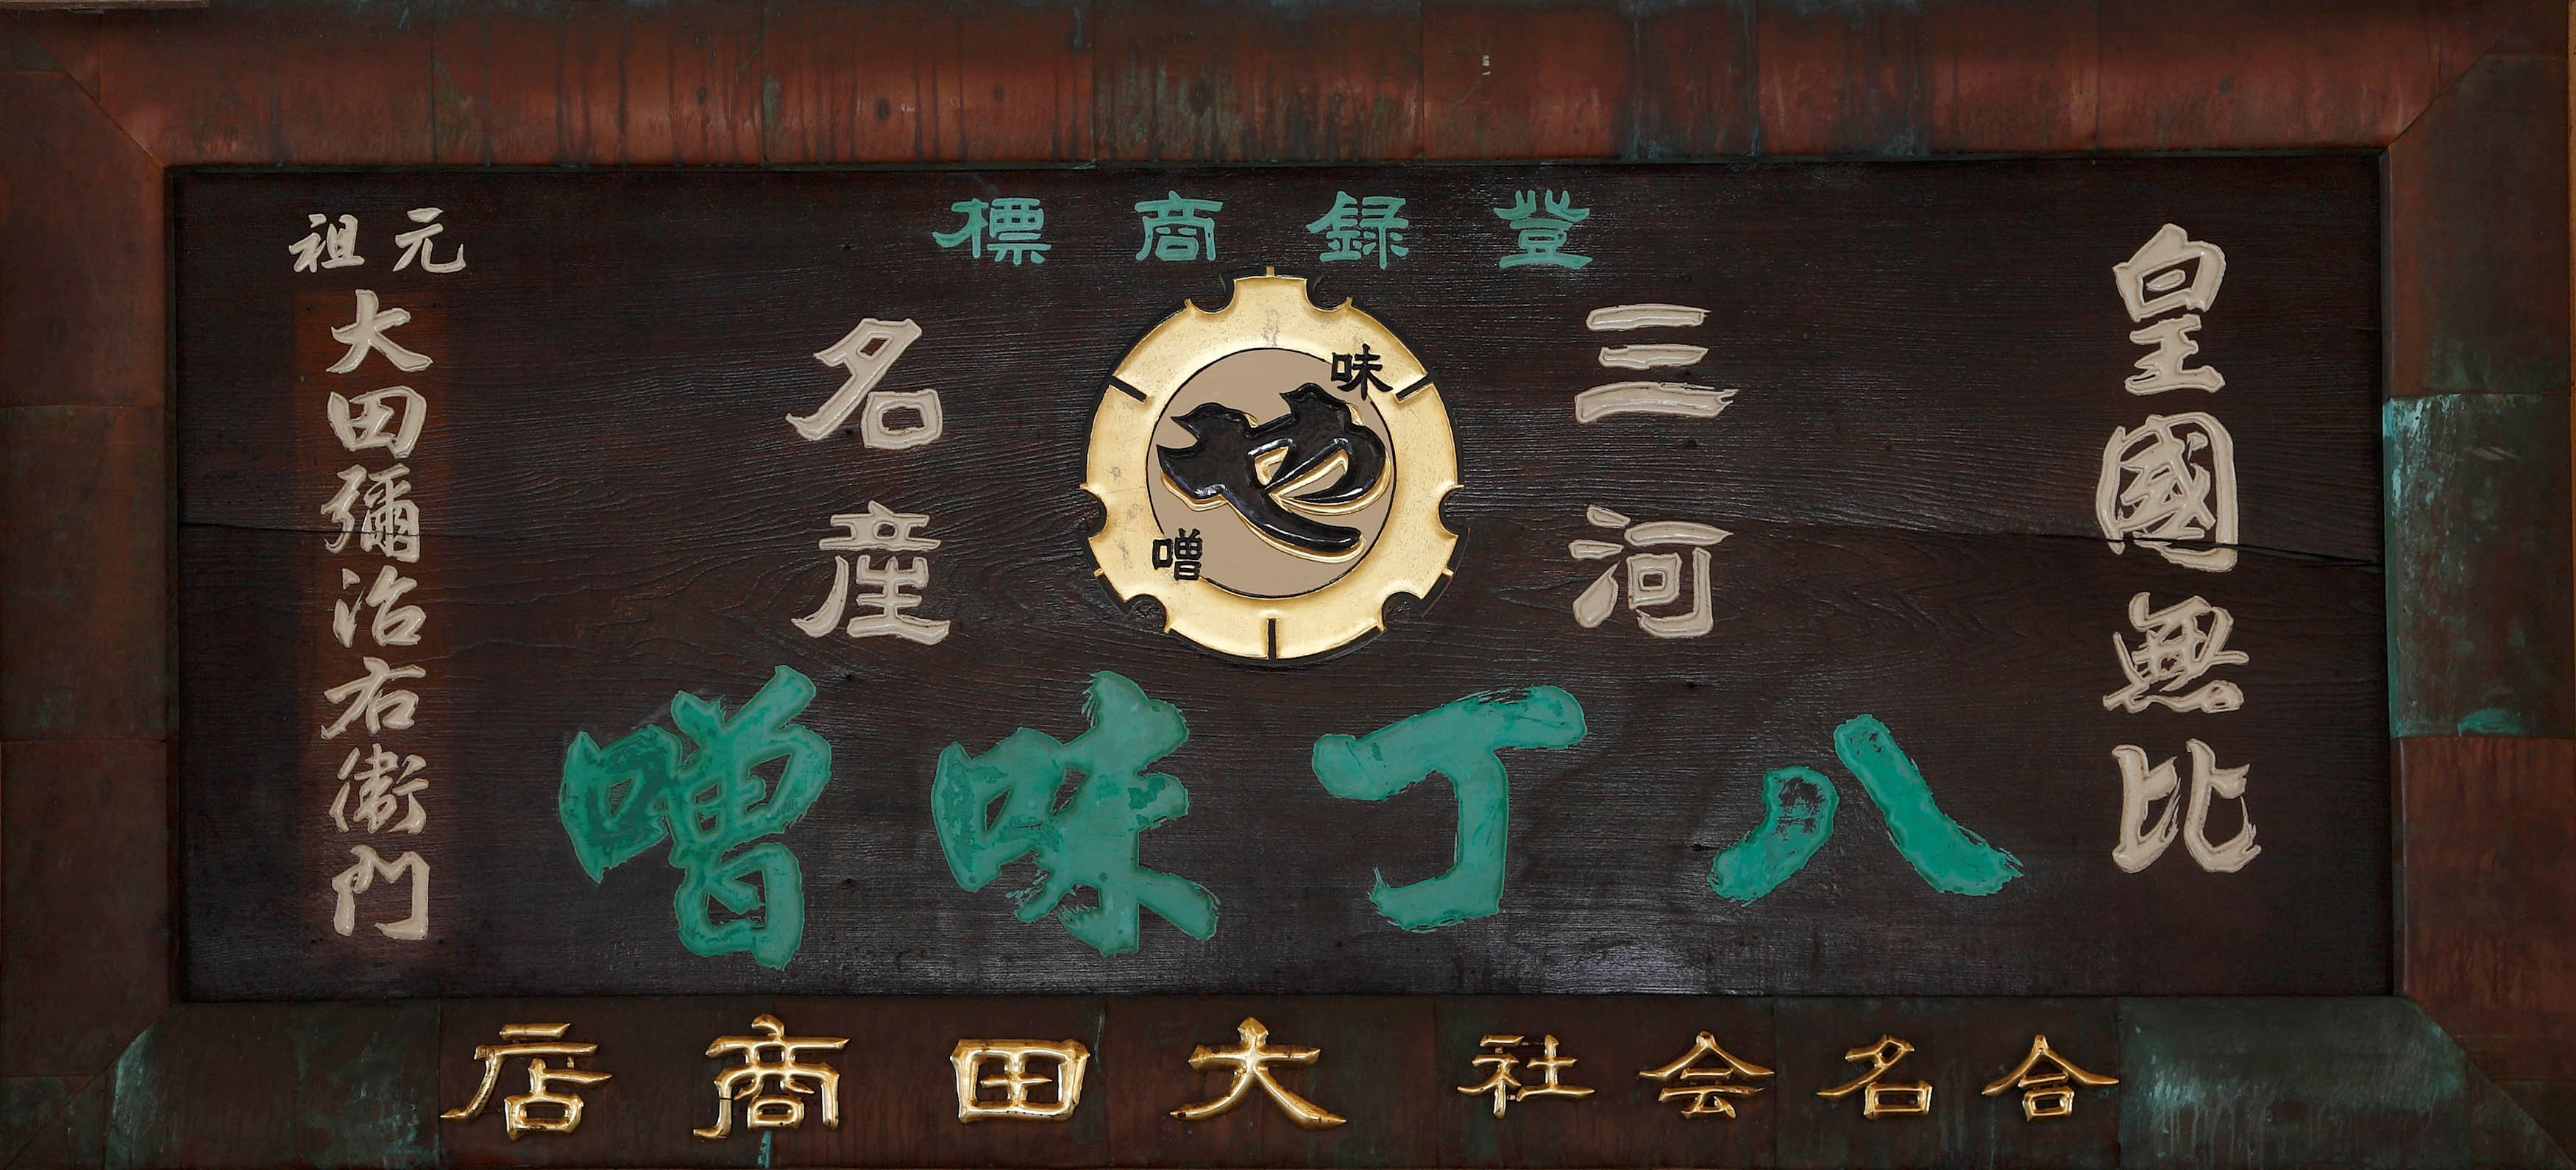 皇國無比
登録商標
三河
名産
味
噌
八丁味噌
元祖
大田彌治右衛門
合名会社 大田商店